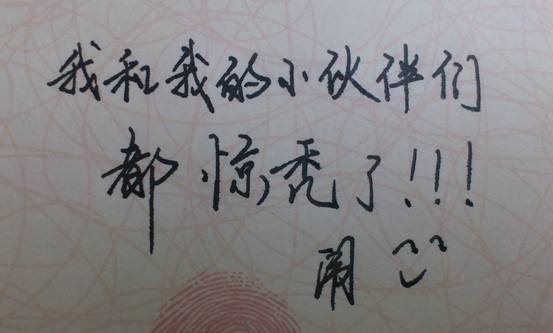 我和我的小伙伴们
都惊秃了!!!